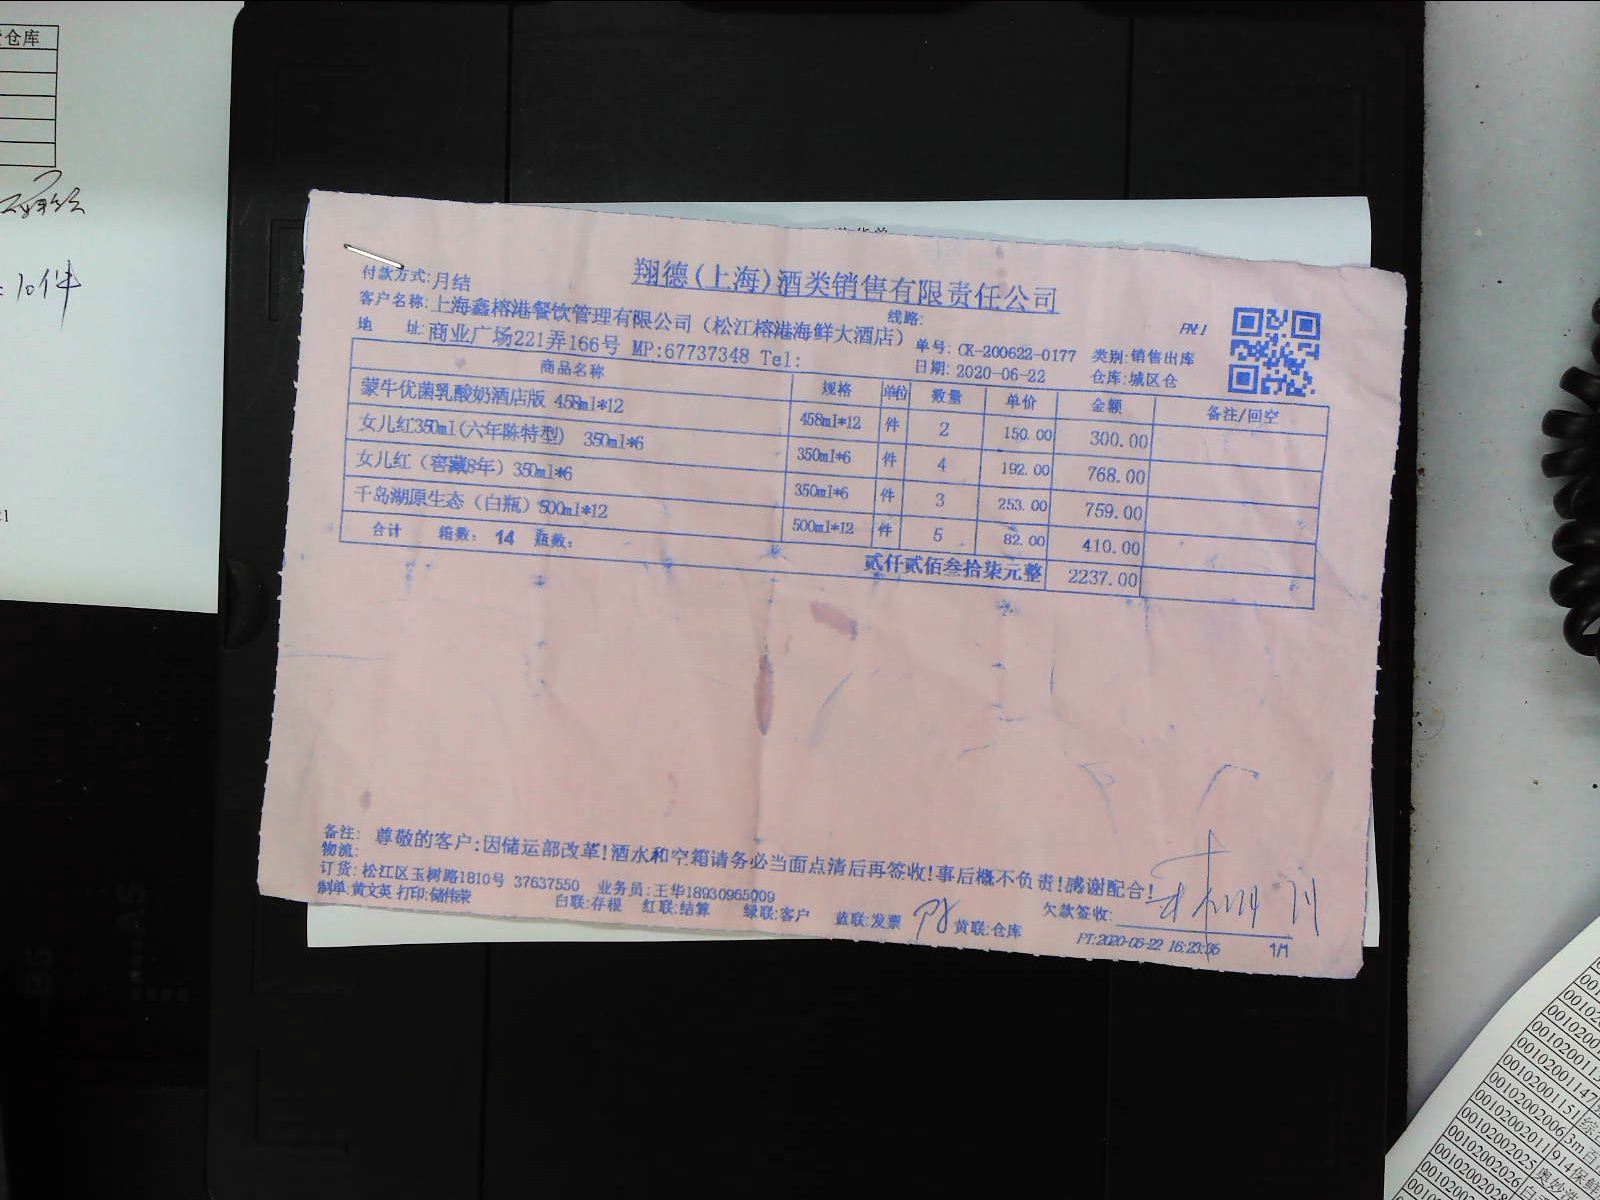 仓库
10件
翔德(上海)酒类销售有限责任公司
付款方式:月结
客户名称:上海鑫榕港餐饮管理有限公司（松江榕港海鲜大酒店） 线路:
地 址:商业广场221弄166号 MP:67737348 Tel: 单号: CK-200622-0177 类别:销售出库
日期: 2020-06-22 仓库:城区仓
商品名称 规格 单位 数量 单价 金额 备注/回空
蒙牛优菌乳酸奶酒店版 458ml*12 458ml*12 件 2 150.00 300.00
女儿红350ml(六年陈特型) 350ml*6 350ml*6 件 4 192.00 768.00
女儿红（窖藏8年）350ml*6 350ml*6 件 3 253.00 759.00
千岛湖原生态（白瓶）500ml*12 500ml*12 件 5 82.00 410.00
合计 箱数: 14 瓶数: 贰仟贰佰叁拾柒元整 2237.00
备注: 尊敬的客户:因储运部改革!酒水和空箱请务必当面点清后再签收!事后概不负责!感谢配合!
物流:
订货: 松江区玉树路1810号 37637550 业务员:王华18930965009
制单:黄文英 打印:储伟荣 白联:存根 红联:结算 绿联:客户 蓝联:发票 黄联:仓库 欠款签收:
PT:2020-06-22 16:23:36 1/1
0010200114
00102001151
00102002006 3m百
00102002011 914保鲜
00102002025 奥妙
00102002026